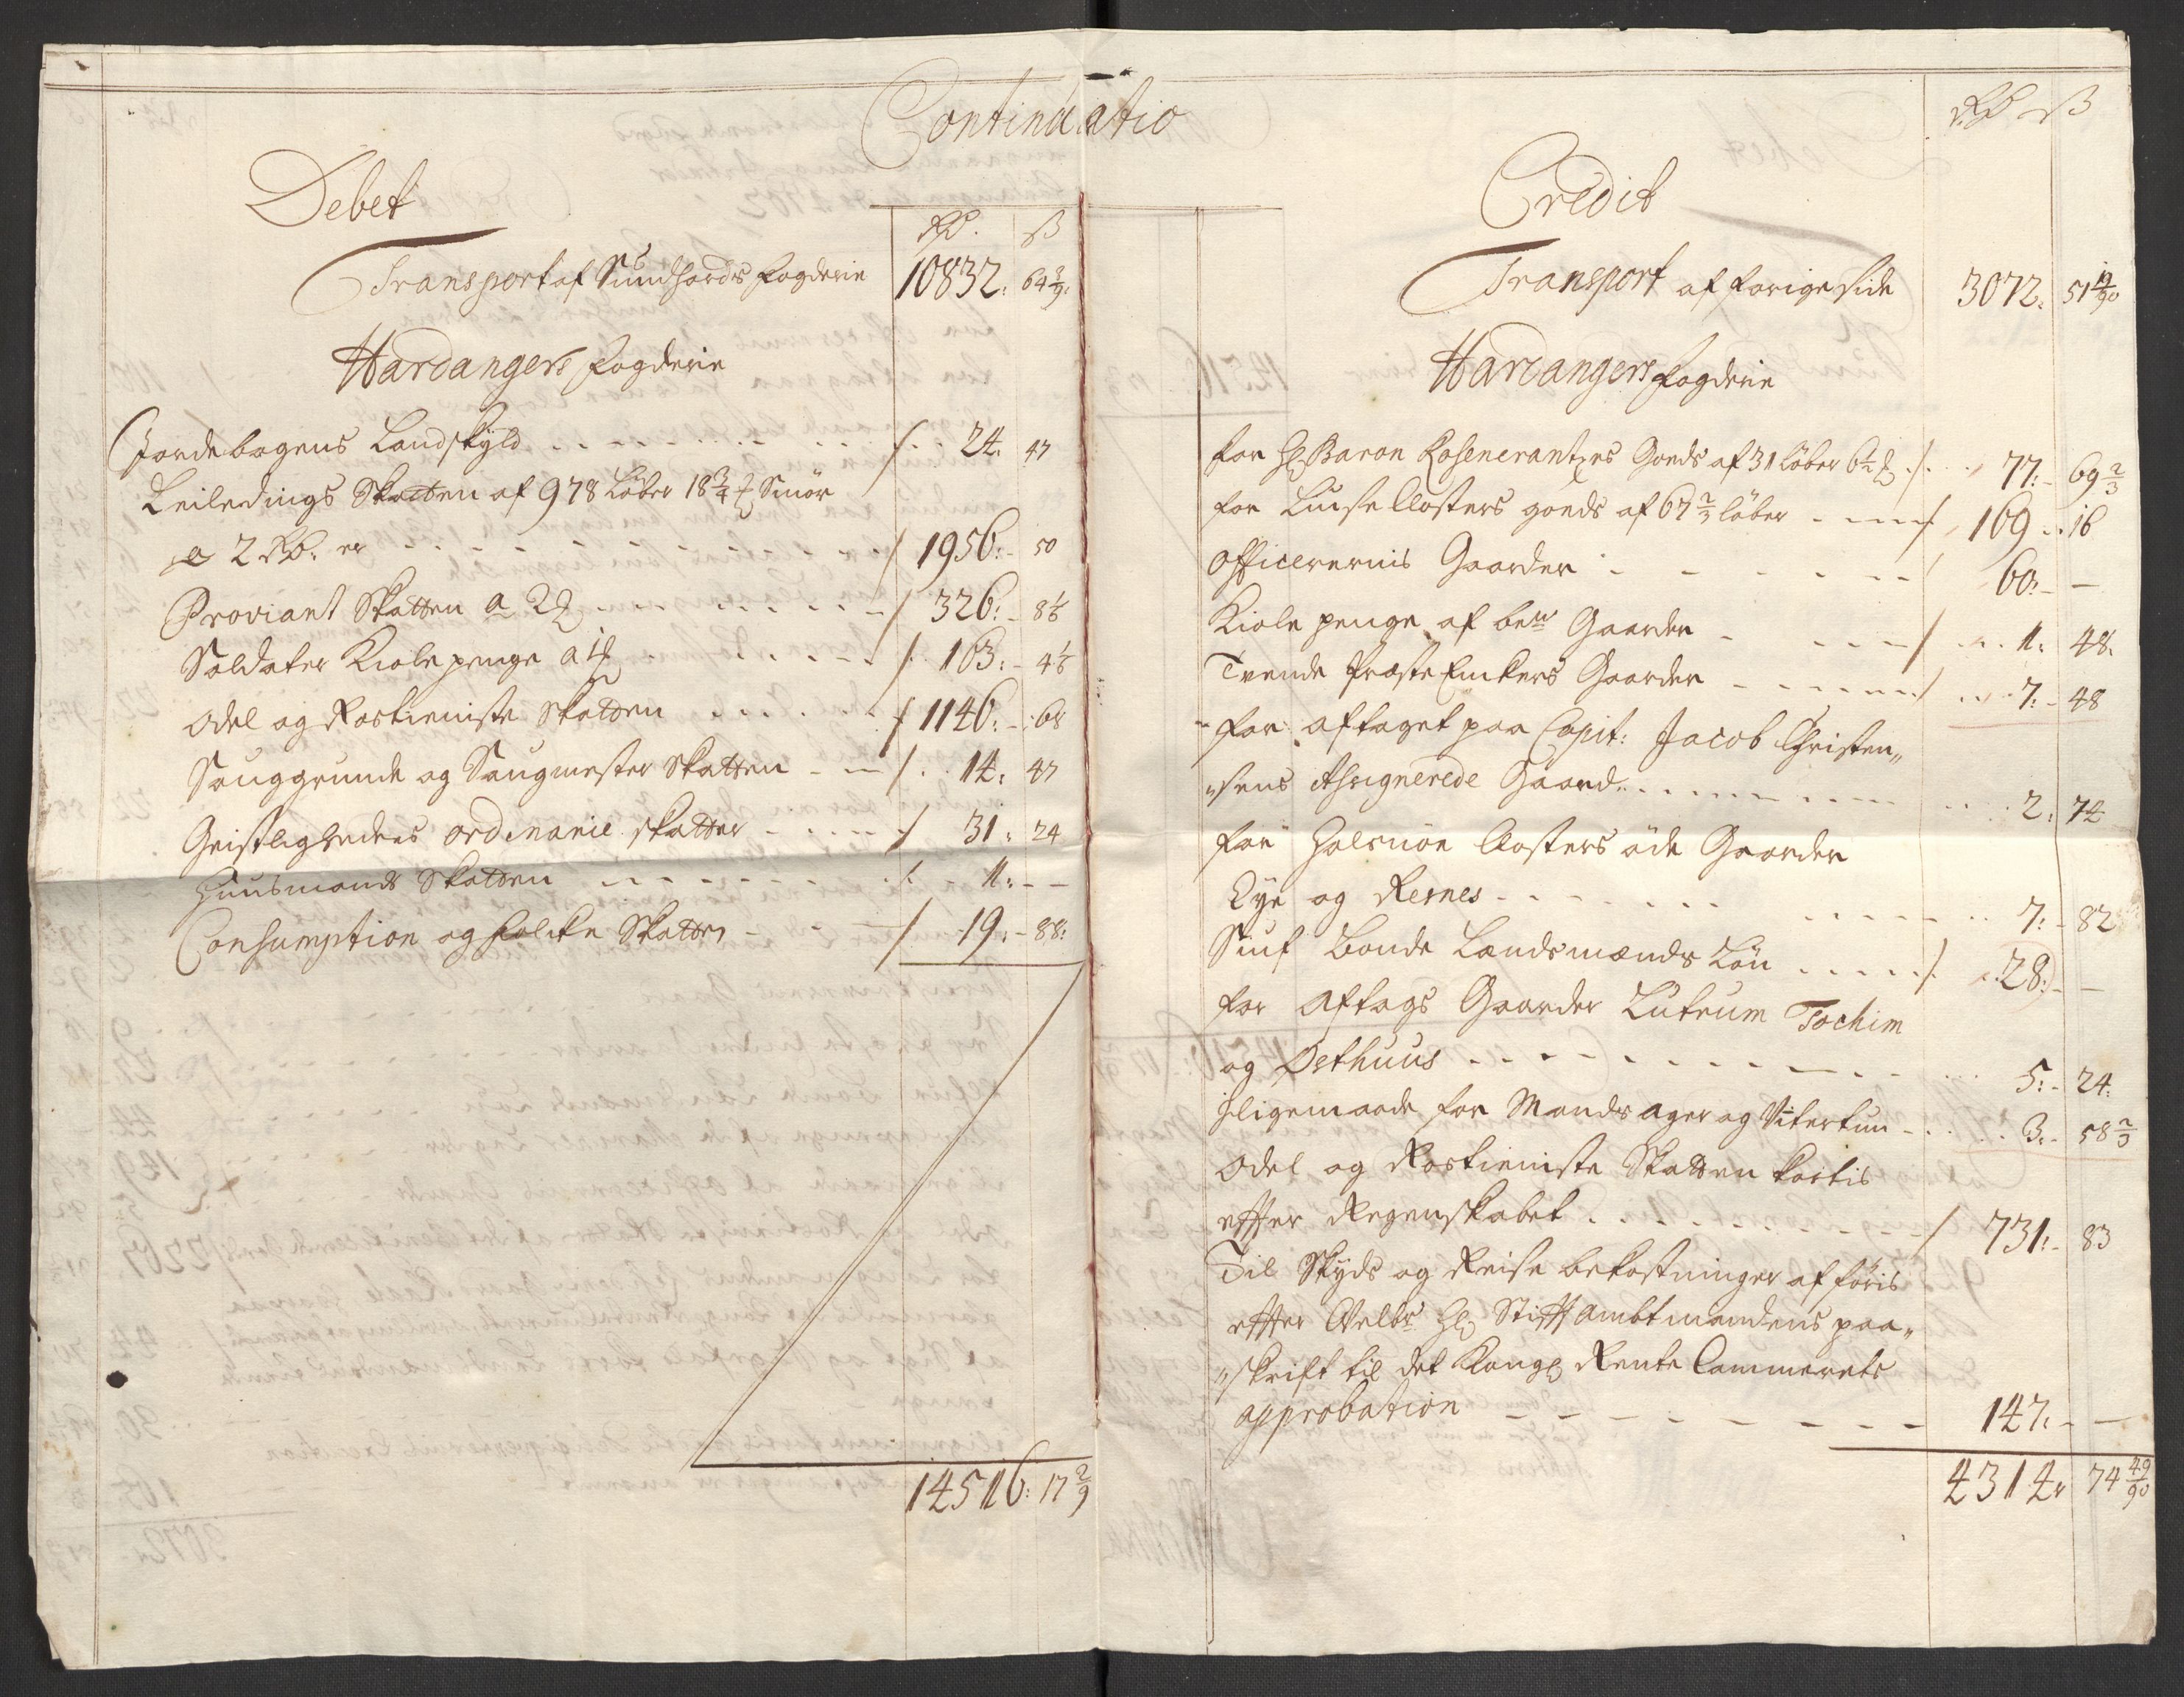 Continuatio
Debet
Rd. ß
Transport af Sundhords fogderie 10832: 64 3/9:
Hardangers fogderie
Jordebogens Landskyld 24. 47
Leiledings Skatten af 978 Løber 18 3/4 Smør
a 2 Rd. er 1956: 50
Proviant Skatten a 2 326: 8 1/8
Soldater Kiole penge a 1 163: 4 1/8
Odel og Rostieniste Skatten 1146: 68
Sauggrunde og Saugmester Skatten 14: 47
Geistlighedens ordinarie skatter 31: 24
Huusmands Skatten 1: - -
Consumption og folcke Skatten 19: 88:
14516: 17 2/9
Rd ß
Credit
Transport af forige side 3072: 51 19/90
Hardangers fogderie
for Hr Baron Rosencrantzes Gods af 31 Løber 6 1/2 77: 69 2/3
for Luise Closters gods af 67 2/3 løber 169 16
Officerernis Gaarder 60: -
Kiole penge af bete Gaarder 1: 48.
Tvende Præste Enkers Gaarder 7: 48
for aftaget paa Capit: Jacob Christen„
„sens Assignerede Gaard 2: 74
for Halsnøe Closters øde Gaarder
Eye og Rernes 7: 82
Siuf Bonde Landsmænds Løn 28: -
for Aftags Gaarder Lutrum Tochim
og Øethuus 5: 24:
Ieligemaade for Mands ager og Vitertun 3: 58 2/3
Odel og Rostieniste Skatten kortis
efter Regenskabet 731: 83
Til Skyds og Reise bekostninger af føris
efter Velbr Hr Stiftambtmandens paa„
„skrift til det Kongl Rente Cammerets
approbation 147: -
4314: 74 49/90